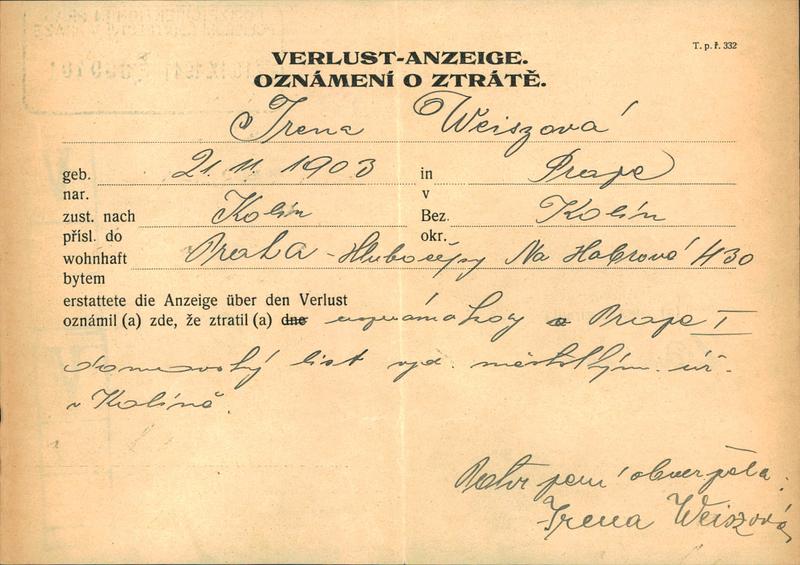 T. p. ř. 332
VERLUST-ANZEIGE.
OZNÁMENÍ O ZTRÁTĚ.
Irena Weiszová
geb. 21. 11. 1903 in Praze
nar. v
zust. nach Kolín Bez. Kolín
přísl. do okr.
wohnhaft Praha - Hlubočepy Na Habrové 430
bytem
erstattete die Anzeige über den Verlust
oznámil (a) zde, že ztratil (a) dne v Praze I
domovský list vyd. městským úř.
v Kolíně.
Irena Weiszová